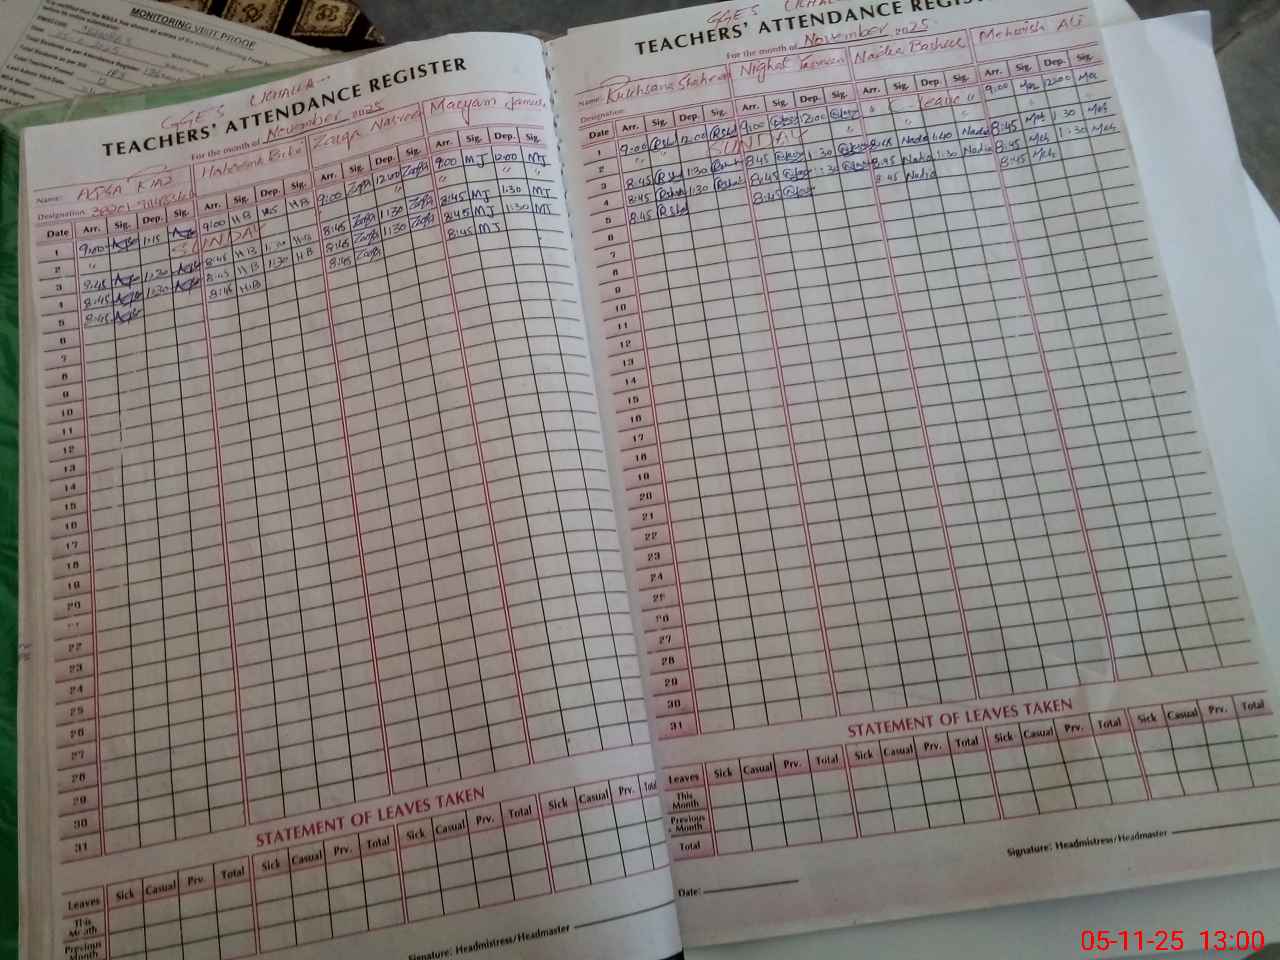 MONITORING VISIT PROOF
GGES UCHALLA
TEACHERS' ATTENDANCE REGISTER
For the month of November 2025
Name: Zarqa Nasreen Maryam
Designation
Date Arr. Sig. Dep. Sig. Arr. Sig. Dep. Sig. Arr. Sig. Dep. Sig. Arr. Sig. Dep. Sig.
1 9:00 1:15 9:00 H B H B 9:00 Zarqa 12:00 Zarqa 9:00 MJ 12:00 MJ
2 " SUNDAY " " "
3 8:45 1:30 8:45 H B 1:30 H B 8:45 Zarqa 1:30 Zarqa 8:45 MJ 1:30 MJ
4 8:45 1:30 8:45 H B 1:30 H B 8:45 Zarqa 1:30 Zarqa 8:45 MJ 1:30 MJ
5 8:45 8:45 H B 8:45 Zarqa 8:45 MJ
6
7
8
9
10
11
12
13
14
15
16
17
18
19
20
21
22
23
24
25
26
27
28
29
30
31
STATEMENT OF LEAVES TAKEN
Leaves Sick Casual Prv. Total Sick Casual Prv. Total Sick Casual Prv. Total Sick Casual Prv. Total
This Month
Previous Month
Signature: Headmistress/Headmaster
GGES UCHALLA
TEACHERS' ATTENDANCE REGIS
For the month of November 2025
Name: Rukhsana Shaheen Nighat Nadia Basheer Mehwish Ali
Designation
Date Arr. Sig. Dep. Sig. Arr. Sig. Dep. Sig. Arr. Sig. Dep. Sig. Arr. Sig. Dep. Sig.
1 9:00 12:00 9:00 12:00 " C Leave " 9:00 Meh 12:00 Meh
2 " " SUNDAY " "
3 8:45 1:30 8:45 1:30 Nadia 1:40 Nadia 8:45 Meh 1:30 Meh
4 8:45 1:30 8:45 1:30 8:45 Nadia 1:30 Nadia 8:45 Meh 1:30 Meh
5 8:45 8:45 8:45 Nadia 8:45 Meh
6
7
8
9
10
11
12
13
14
15
16
17
18
19
20
21
22
23
24
25
26
27
28
29
30
31
STATEMENT OF LEAVES TAKEN
Leaves Sick Casual Prv. Total Sick Casual Prv. Total Sick Casual Prv. Total Sick Casual Prv. Total
This Month
Previous Month
Total
Signature: Headmistress/Headmaster
Date:
05-11-25 13:00